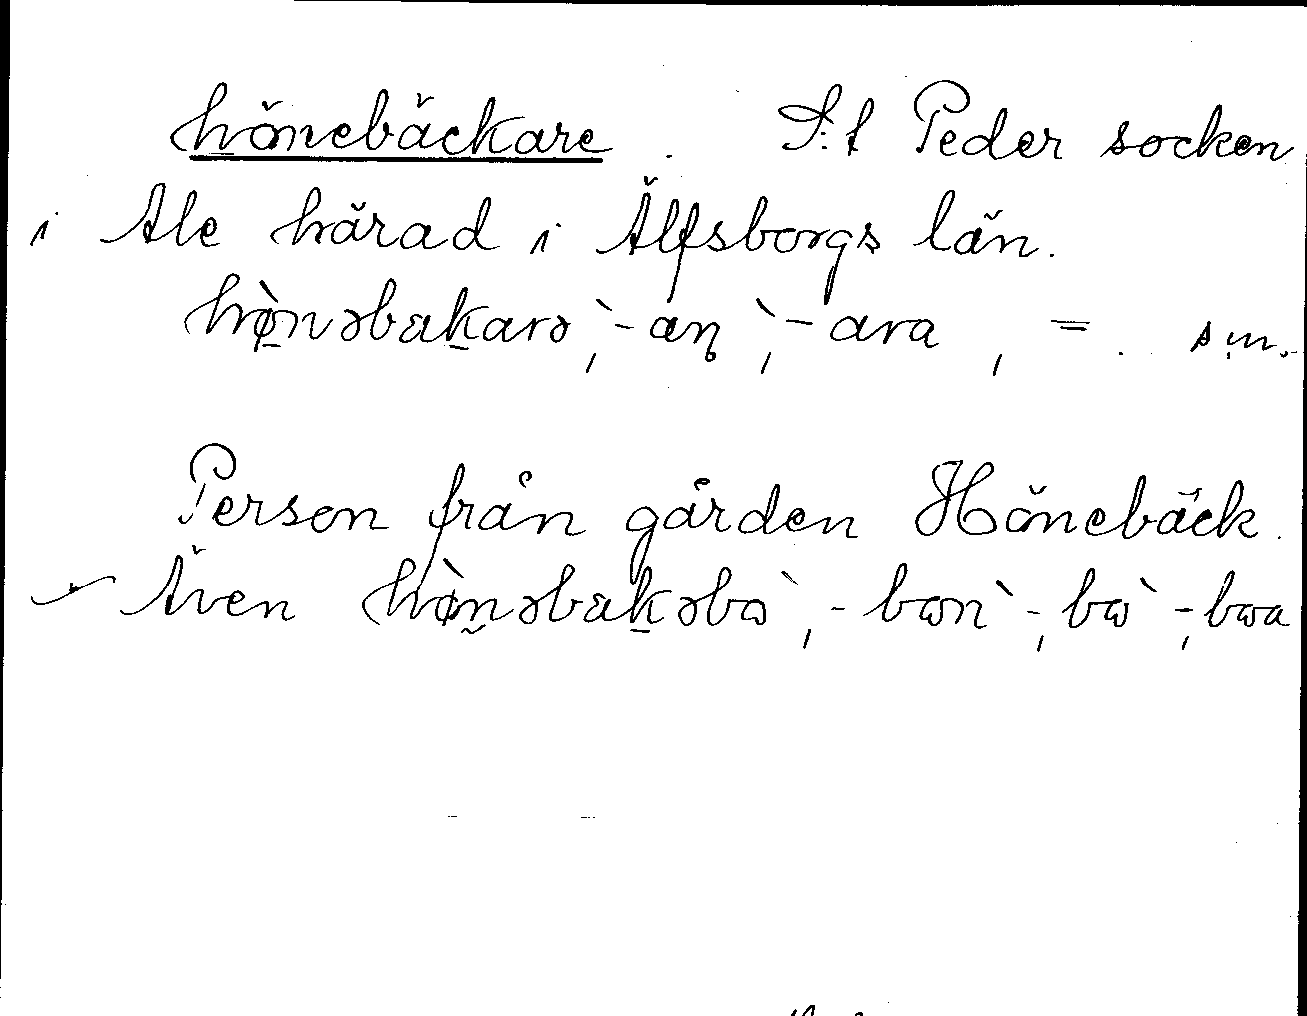 hönebäckare. S:t Peder socken
i Ale härad i Älfsborgs län.
hø̀nəbäkarə, -an̥, -ara, =. sm.
Person från gården Hönebäck.
Även hø̀nəbäkəbɷ, -bɷn, -bɷ, -bɷa